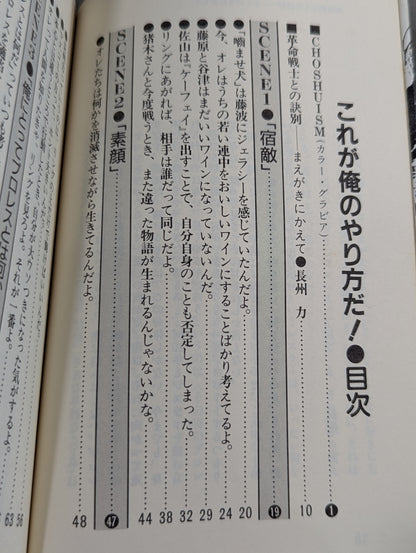 これが俺のやり方だ!●目次
■CHOSHUISM(カラー・グラビア)……❶
■革命戦士との訣別 まえがきにかえて●長州 力……10
SCENE1●「宿敵」……⓳
●「噛ませ犬」は藤波にジェラシーを感じていたんだよ。……20
●今、オレはうちの若い連中をおいしいワインにすることばかり考えてるよ。……24
●藤原と谷津はまだいいワインになっていないんだ。……29
●佐山は「ケーフェイ」を出すことで、自分自身のことも否定してしまった。……32
●リングにあがれば、相手は誰だって同じだよ。……38
●猪木さんと今度戦うとき、また違った物語が生まれるんじゃないかな。……44
SCENE2●「素顔」……㊼
●オレたちは何かを消滅させながら生きてるんだよ。……48